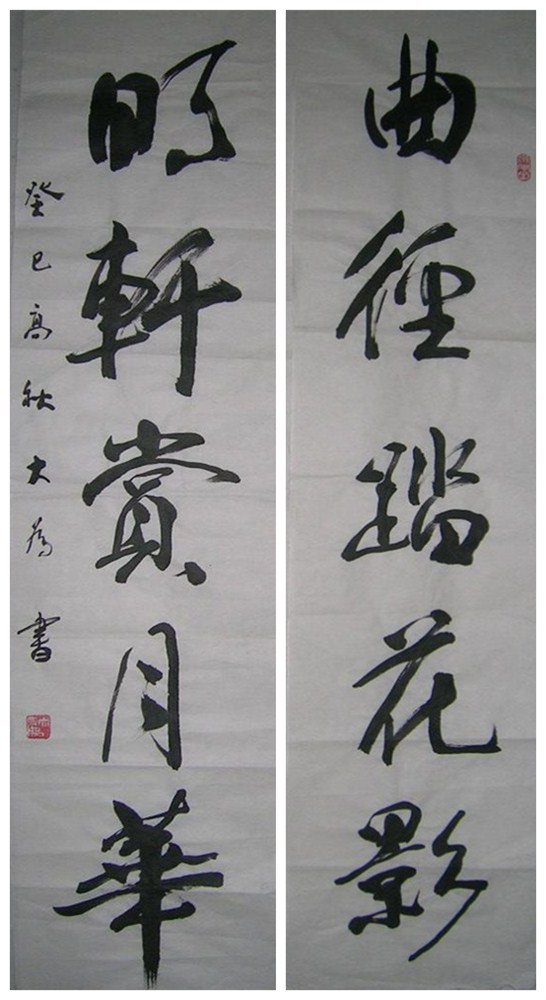 曲徑踏花影
明軒賞月華
癸巳高秋大為書